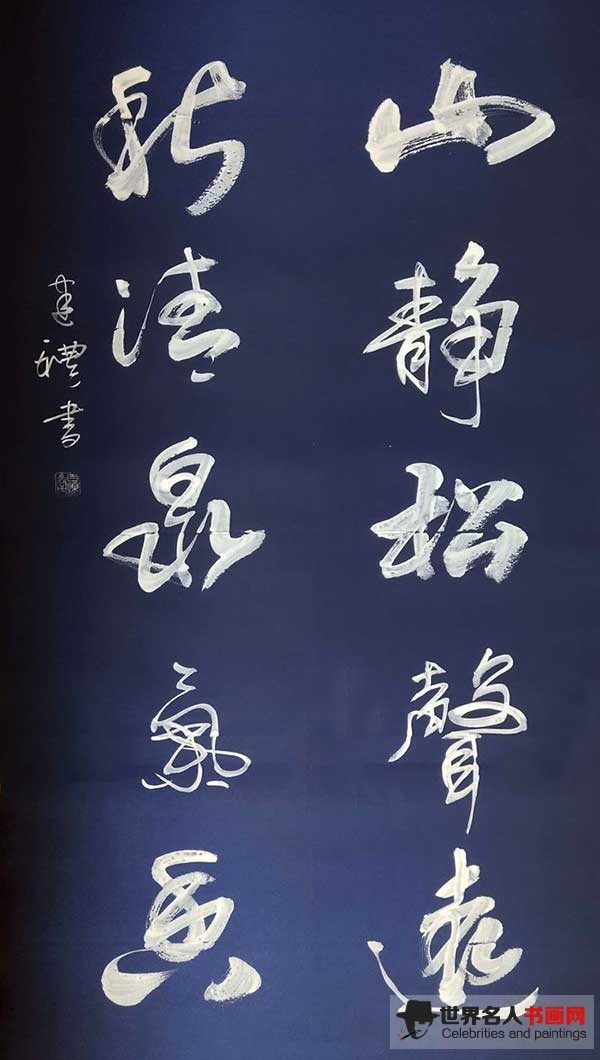 山静松聲遠
秋清泉氣香
建禮書
世界名人书画网
Celebrities and paintings